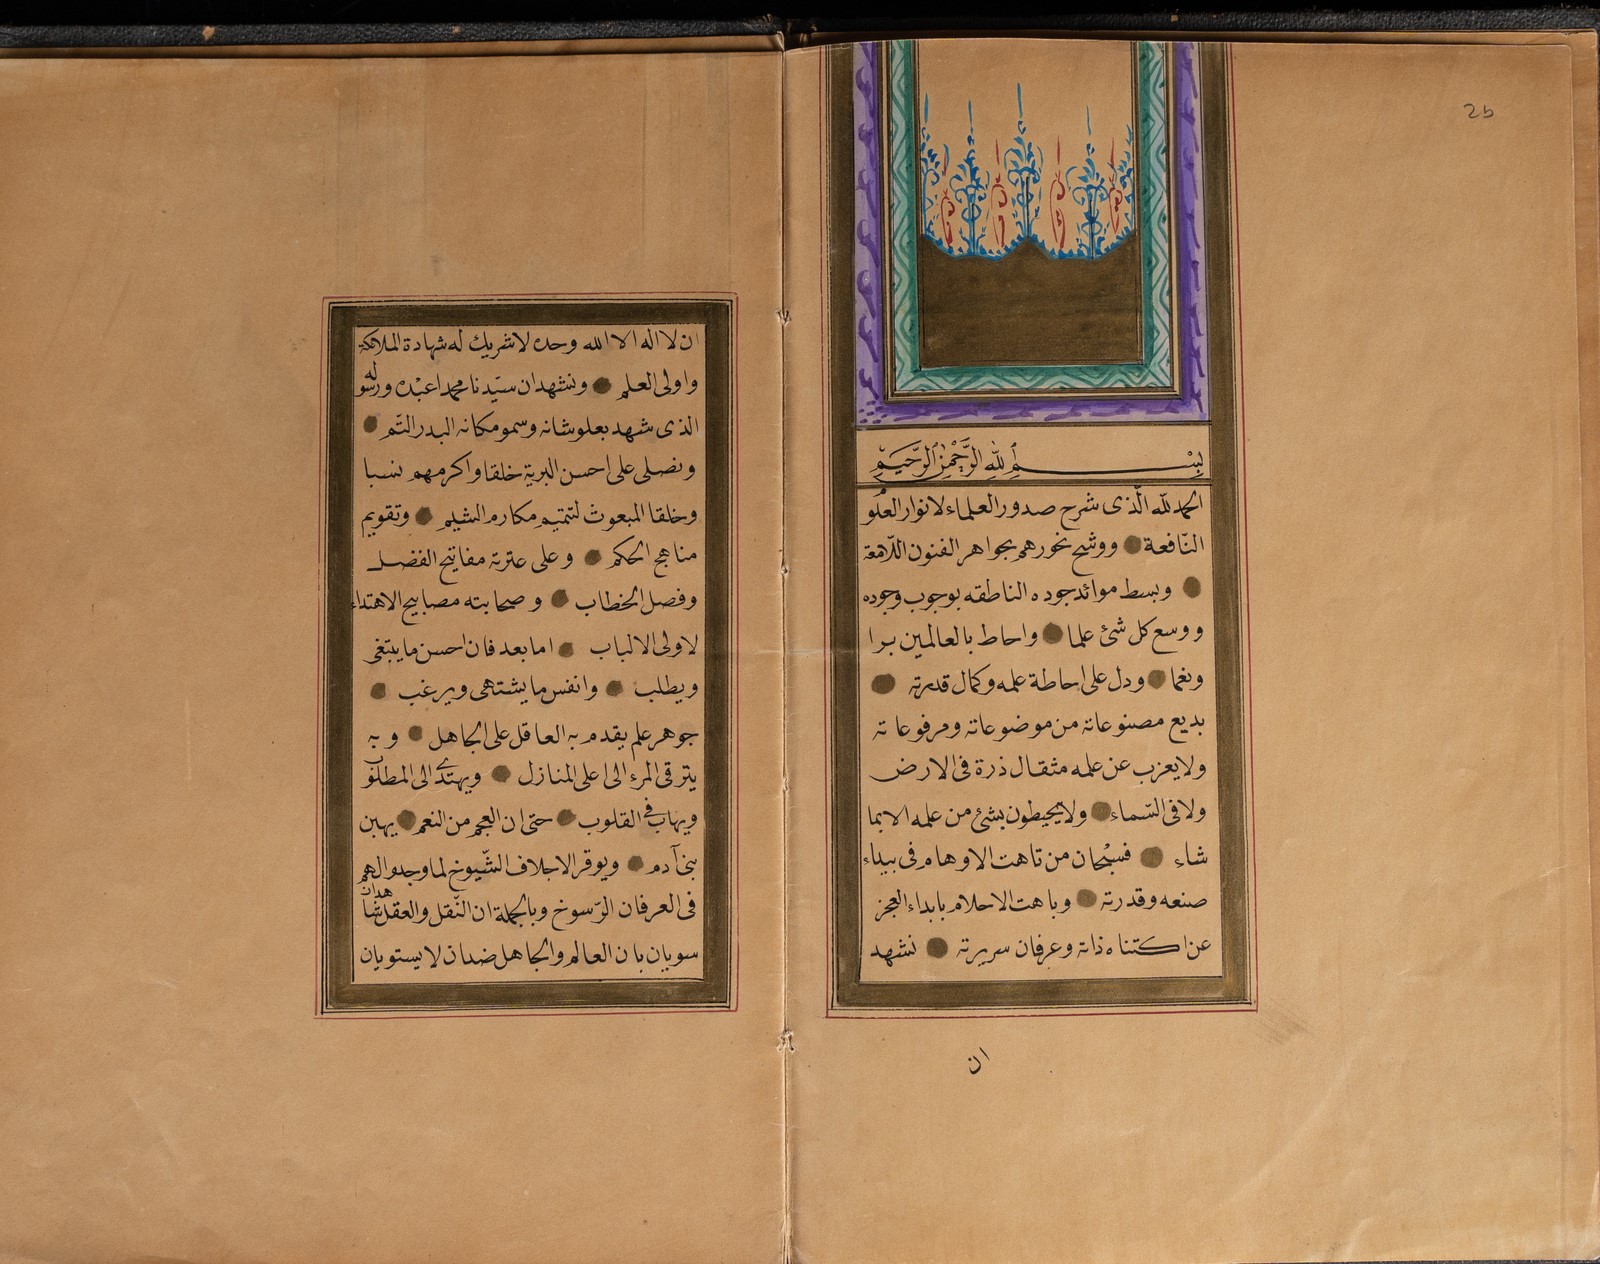 2b
بِسْمِ اللهِ الرَّحْمٰنِ الرَّحِيْمِ
الحمد لله الّذى شرح صدور العلماء لانوار العلُو
النّافعة ووشح نحورهم بجواهر الفنون اللّامعة
وبسط موائد جوده الناطقه بوجوب وجوده
ووسع كل شئ علما واحاط بالعالمين برا
ونعما ودل على احاطة علمه وكمال قدرته
بديع مصنوعاته من موضوعاته ومرفوعاته
ولا يعزب عن علمه مثقال ذرة فى الارض
ولا فى السّماء ولا يحيطون بشئ من علمه الا بما
شاء فسبْحان من تاهت الاوهام فى بيداء
صنعه وقدرته وباهت الاحلام بابداء العجز
عن اكتناه ذاته وعرفان سريرته نشهد
ان
ان لا اله الا الله وحده لا شريك له شهادة الملائكة
واولى العلم ونشهد ان سيّدنا محمدا عبْده ورسوله
الذى شهد بعلو شانه وسمو مكانه البدر التّم
ونصلى على احسن البرية خلقا واكرمهم نسبا
وخلقا المبعوث لتتميم مكارم الشيم وتقويم
مناهج الحكم وعلى عترته مفاتيح الفضل
وفصل الخطاب وصحابته مصابيح الاهتداء
لاولى الالباب اما بعد فان احسن ما يبتغى
ويطلب وانفس ما يشتهى ويرغب
جوهر علم يقدم به العاقل على الجاهل وبه
يترقى المرء الى اعلى المنازل ويهتدى الى المطلوب
ويهاب فى القلوب حتى ان العجم من النعم يهبن
بنى آدم ويوقر الاجلاف الشّيوخ لما وجدوا لهم
فى العرفان الرّسوخ وبالجملة ان النّقل والعقل شاهدان
سويان بان العالم والجاهل ضدان لا يستويان